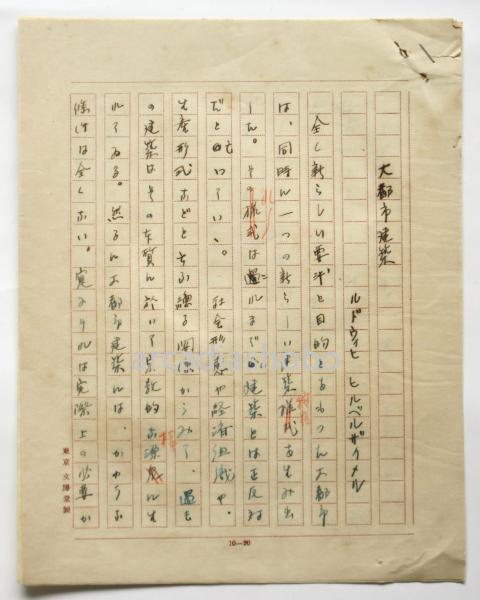 大都市建築
ルドウィヒ ヒルベルザイメル
全く新らしい要求と目的とをもつた大都市
は、同時に一つの新らしい建築様式を生み出
した。その様式は過ぎこれまでの建築とは正反対
だと云いていい。社会形態や経済組織や、
生産形式などとちがふ関係からみて、過去
の建築はその本質に於いて宗教的な源泉に生
れてゐる。然るに大都市建築には、かゝうな
條件は全くない。寧みそれは実際上の必要か
東京 文陽堂製
10—20
arcadiashobo